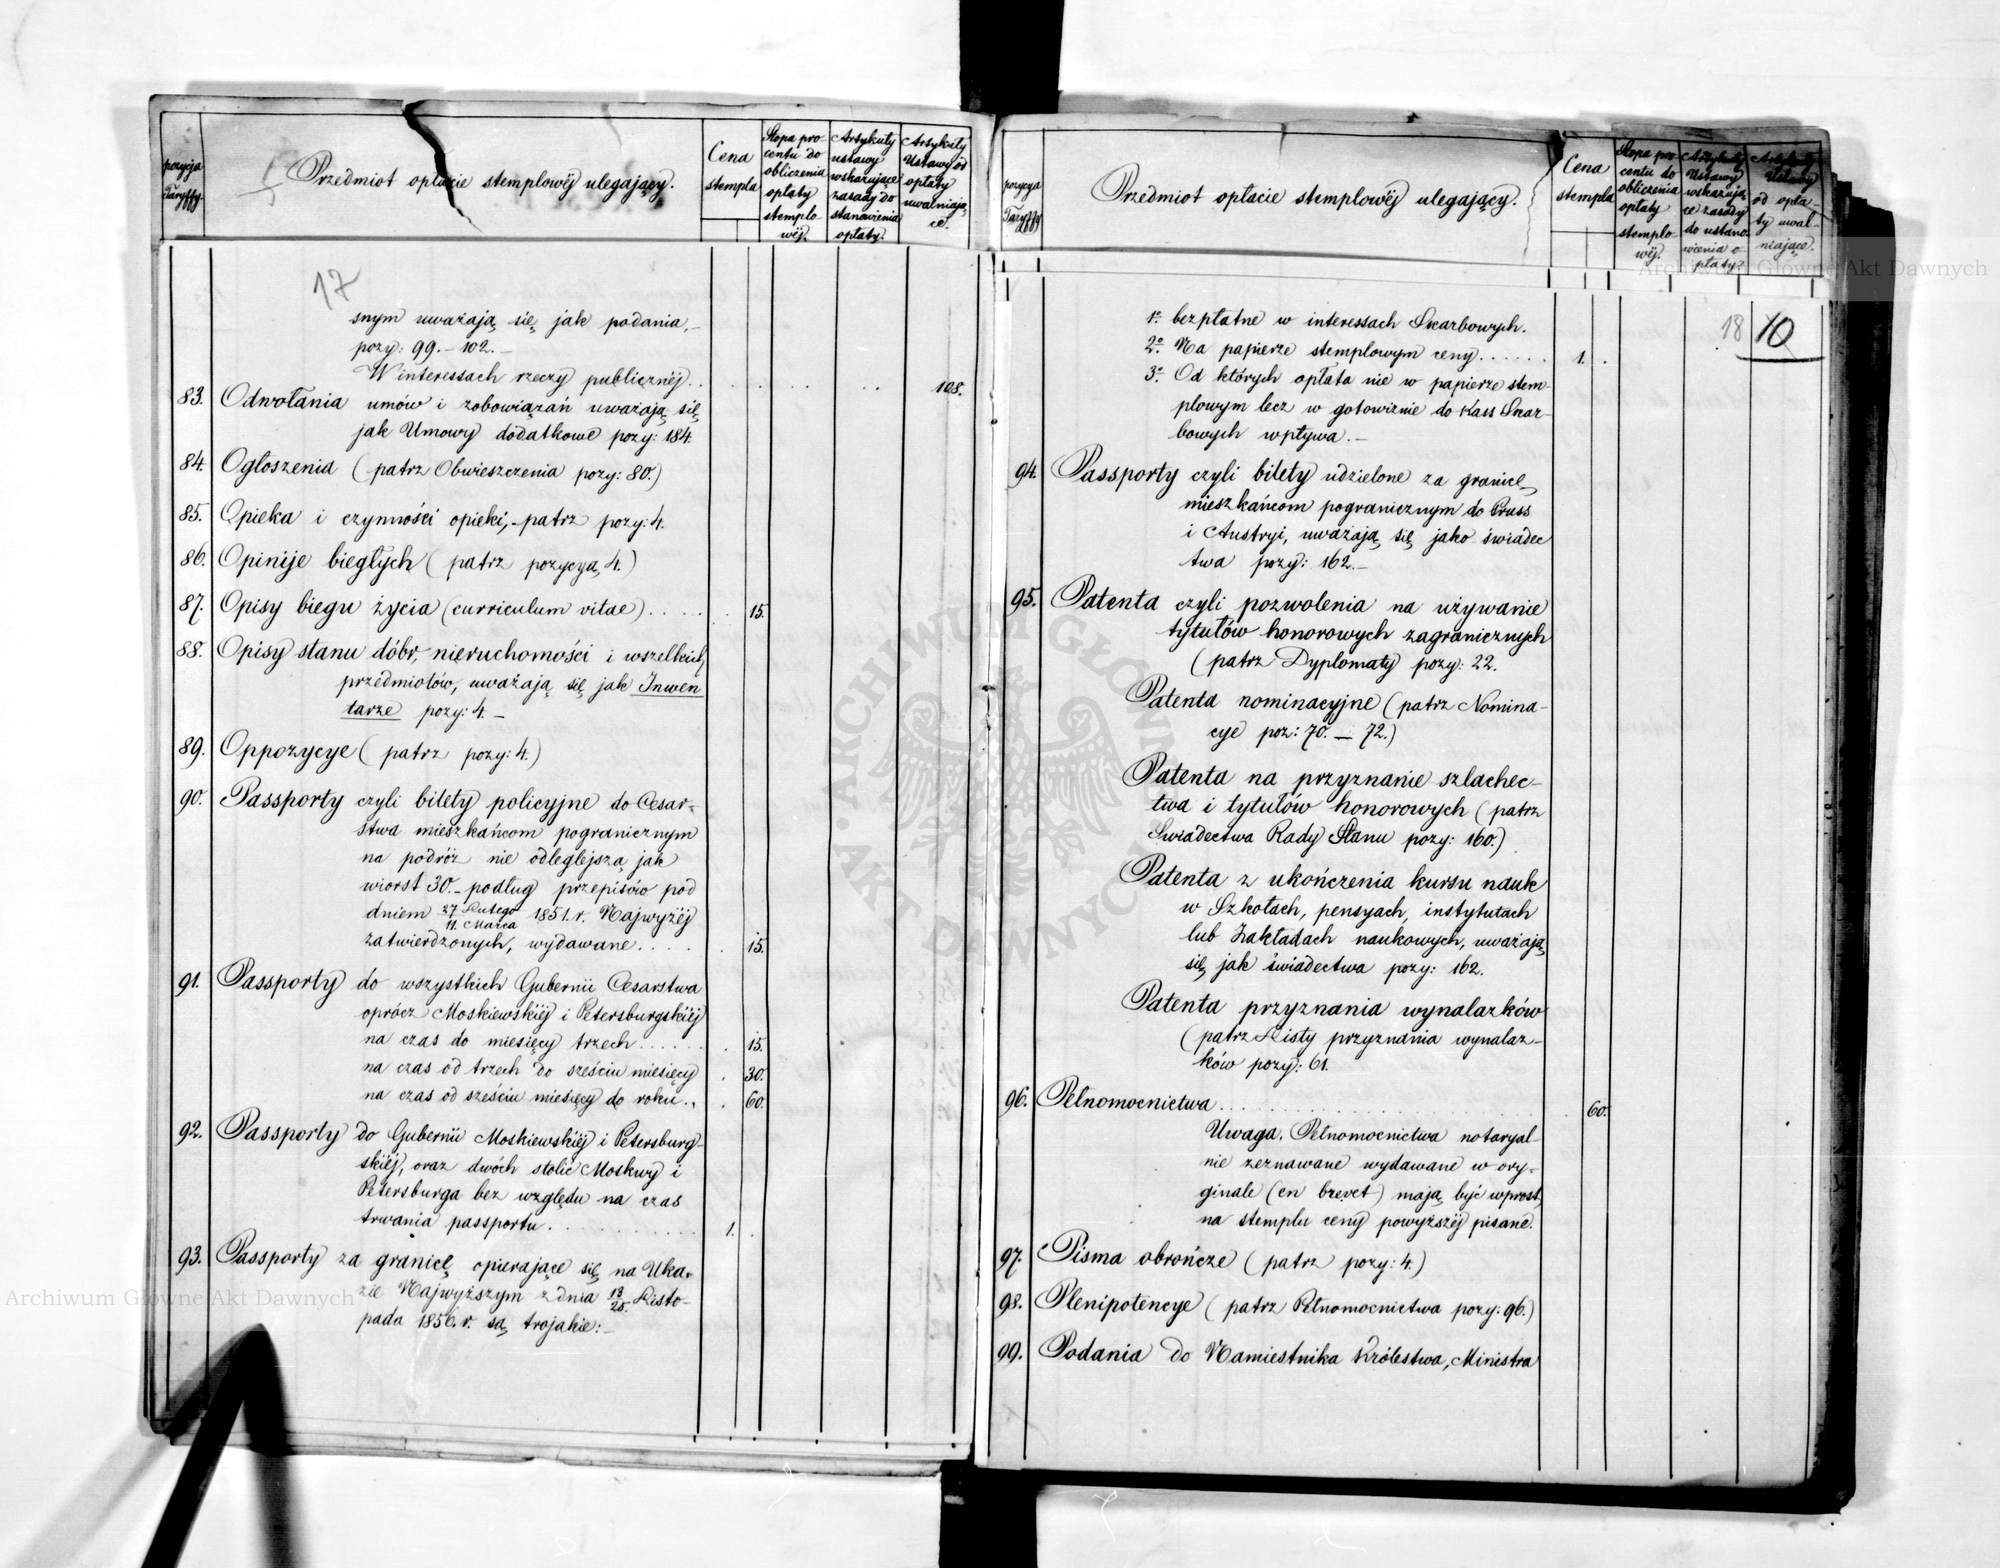 pozycja
Taryffy.
Przedmiot opłacie stemplowéj ulegający.
Cena
stempla
Stopa pro-
centu do
obliczenia
opłaty
stemplo-
wéj.
Artykuły
ustawy
wskazujące
zasady do
stanowienia
opłaty.
Artykuły
Ustawy od
opłaty
uwalniają
ce.
17
snym uważają się jak podania,
pozy: 99.-102.-
W interessach rzeczy publicznéj. . . . . . . 108.
83. Odwołania umów i zobowiązań uważają się
jak Umowy dodatkowe pozy: 184.
84. Ogłoszenia (patrz Obwieszczenia pozy: 80.)
85. Opieka i czynności opieki,-patrz pozy: 4.
86. Opinije biegłych (patrz pozycya, 4.)
87. Opisy biegu życia (curriculum vitae) . . . . . 15.
88. Opisy stanu dóbr, nieruchomości i wszelkich
przedmiotów, uważają się jak Inwen
tarze pozy: 4.-
89. Oppozycye (patrz pozy: 4.)
90. Passporty czyli bilety policyjne do Cesar-
stwa mieszkańcom pogranicznym
na podróż nie odleglejszą jak
wiorst 30.- podług przepisów pod
dniem 27 Lutego
11. Marca 1851. r. Najwyżéj
zatwierdzonych, wydawane . . . . . 15.
91. Passporty do wszystkich Gubernii Cesarstwa
oprócz Moskiewskiéj i Petersburgskiéj
na czas do miesięcy trzech . . . . . . . 15.
na czas od trzech do sześciu miesięcy . 30.
na czas od sześciu miesięcy do roku . . . 60.
92. Passporty do Gubernii Moskiewskiéj i Petersburg-
skiéj, oraz dwóch stolic Moskwy i
Petersburga bez względu na czas
trwania passportu . . . . . . . . . . 1. .
93. Passporty za granicę opierające się na Uka-
zie Najwyższym z dnia 13/25. Listo-
pada 1856. r. są trojakie:-
pozycya
Taryffy
Przedmiot opłacie stemplowéj ulegający.
Cena
stempla
Stopa pro-
centu do
obliczenia
opłaty
stemplo-
wéj.
Artykuły
Ustawy
wskazują-
ce zasady
do ustano
wienia o-
płaty.
Artykuły
Ustawy
od opła-
ty uwal-
niające.
Archiwum Główne Akt Dawnych
18 10
1º. bezpłatne w interessach Skarbowych.
2º. Na papierze stemplowym ceny . . . . . . 1. .
3º. Od których opłata nie w papierze stem-
plowym lecz w gotowiznie do Kass Skar-
bowych wpływa.-
94. Passporty czyli bilety udzielone za granicę
mieszkańcom pogranicznym do Pruss
i Austryi, uważają się jako świadec
twa pozy: 162.-
95. Patenta czyli pozwolenia na używanie
tytułów honorowych zagranicznych
(patrz Dyplomaty pozy: 22.
Patenta nominacyjne (patrz Nomina-
cye poz: 70. - 72.)
Patenta na przyznanie szlachec-
twa i tytułów honorowych (patrz
Świadectwa Rady Stanu pozy: 160.)
Patenta z ukończenia kursu nauk
w Szkołach, pensyach, instytutach
lub Zakładach naukowych, uważają
się jak świadectwa pozy: 162.
Patenta przyznania wynalazków
(patrz Listy przyznania wynalaz-
ków pozy: 61.
96. Pełnomocnictwa . . . . . . . . . . . . . . . . 60.
Uwaga. Pełnomocnictwa notaryal-
nie zeznawane wydawane w ory-
ginale (en brevet) mają być wprost
na stemplu ceny powyższéj pisane.
97. Pisma obrończe (patrz pozy: 4.)
98. Plenipotencye (patrz Pełnomocnictwa pozy: 96.)
99. Podania do Namiestnika Królestwa, Ministra
Archiwum Główne Akt Dawnych
ARCHIWUM GŁÓWNE AKT DAWNYCH